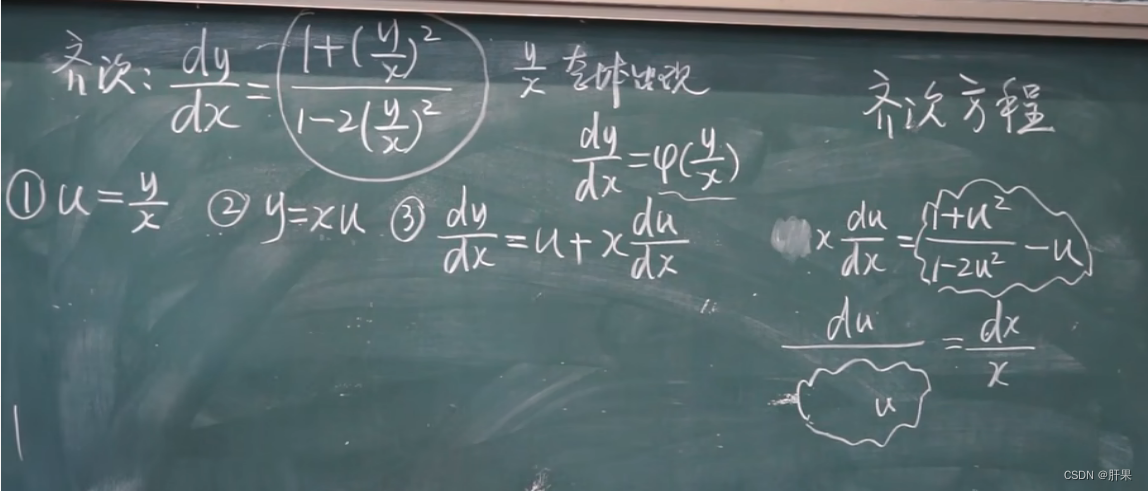 齐次: dy/dx = (1+(y/x)²)/(1-2(y/x)²)
y/x 整体出现
齐次方程
dy/dx = φ(y/x)
① u = y/x ② y = xu ③ dy/dx = u + x du/dx
x du/dx = (1+u²)/(1-2u²) - u
du/u = dx/x
CSDN @肝果